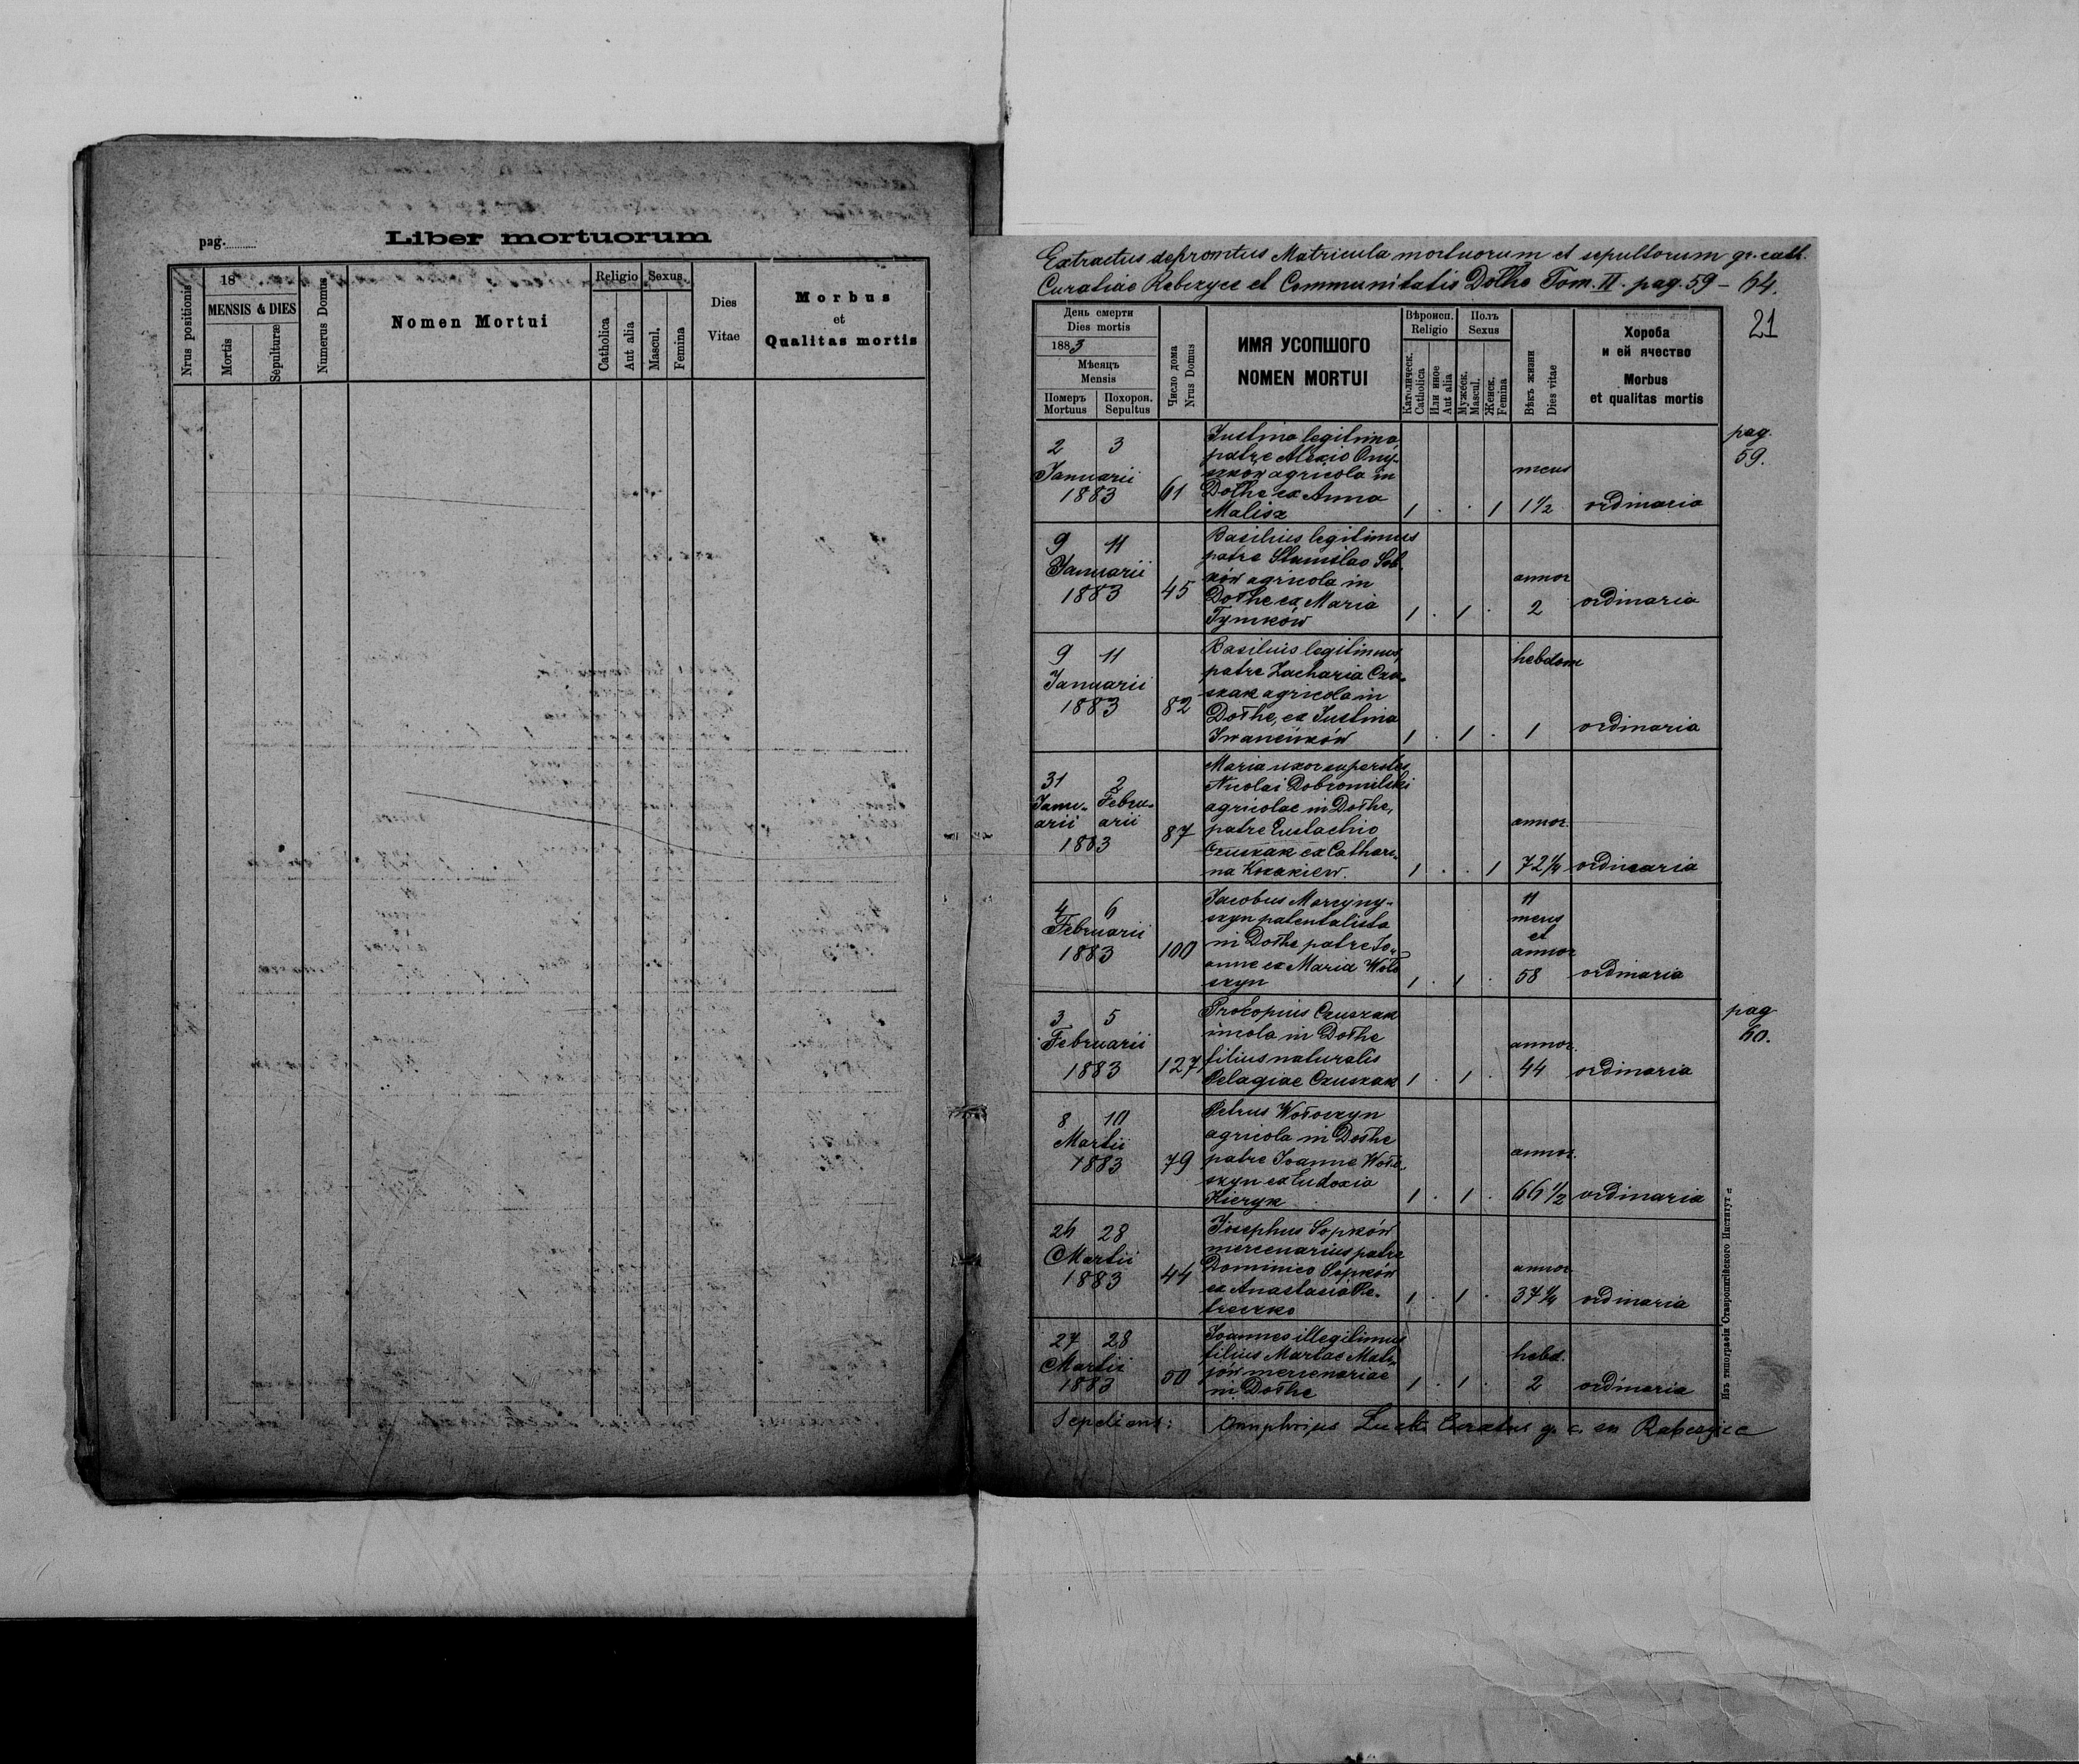 pag.
Liber mortuorum
Nrus positionis
18
MENSIS & DIES
Mortis
Sepulturæ
Numerus Domus
Nomen Mortui
Religio
Catholica
Aut alia
Sexus.
Mascul.
Femina
Dies
Vitae
Morbus
et
Qualitas mortis
Extractus depromtus Matricula mortuorum et sepultorum gr. cath.
Curatiae Rabczyce et Communitatis Dołhe Tom. II. pag. 59 – 64.
21
День смерти
Dies mortis
1883
Мѣсяцъ
Mensis
Померъ
Mortuus
Похорон.
Sepultus
Число дома
Nrus Domus
ИМЯ УСОПШОГО
NOMEN MORTUI
Вѣроисп.
Religio
Католическ.
Catholica
Или иное
Aut alia
Полъ
Sexus
Мужеск.
Mascul.
Женск.
Femina
Вѣкъ жизни
Dies vitae
Хороба
и ей ячество
Morbus
et qualitas mortis
pag.
59.
2 3
Januarii
1883
61
Justina legitima,
patre Alexio Ony-
szków agricola in
Dołhe ex Anna
Malisz
1 . . 1
mens
1 1/2
ordinaria
9 11
Januarii
1883
45
Basilius legitimus
patre Stanislao Sob-
ków agricola in
Dołhe ex Maria
Tymków
1 . 1 .
annor
2
ordinaria
9 11
Januarii
1883
82
Basilius legitimus,
patre Zacharia Czu-
szak agricola in
Dołhe, ex Justina
Iwanciuków
1 . 1 .
hebdom
1
ordinaria
31 2
Janu- Febru-
arii arii
1883
87
Maria uxor superstes
Nicolai Dobromilski
agricolae in Dołhe,
patre Eustachio
Czuszak ex Cathari-
na Kozakiew.
1 . . 1
annor.
72 1/4
ordinaria
4 6
Februarii
1883
100
Jacobus Marcyny-
szyn patentalista
in Dołhe patre Jo-
anne ex Maria Woło
szyn
1 . 1 .
11
mens
et
annor
58
ordinaria
pag
60.
3 5
Februarii
1883
127
Prokopius Czuszak
incola in Dołhe
filius naturalis
Pelagiae Czuszak
1 . 1 .
annor.
44
ordinaria
8 10
Martii
1883
79
Petrus Wołoszyn
agricola in Dołhe
patre Joanne Woło-
szyn ex Eudoxia
Kieryk
1 . 1 .
annor.
66 1/2
ordinaria
26 28
Martii
1883
44
Josephus Sopków
mercenarius patre
Dominico Sopków
ex Anastasia Pe-
treczko
1 . 1 .
annor
37 1/4
ordinaria
27 28
Martii
1883
50
Joannes illegitimus
filius Mariae Mati-
jów mercenariae
in Dołhe
1 . 1 .
hebd.
2
ordinaria
Sepeliens: Onuphrius Curatus g. c. in Rabczyce
Изъ типографіи Ставропигійского Институт а